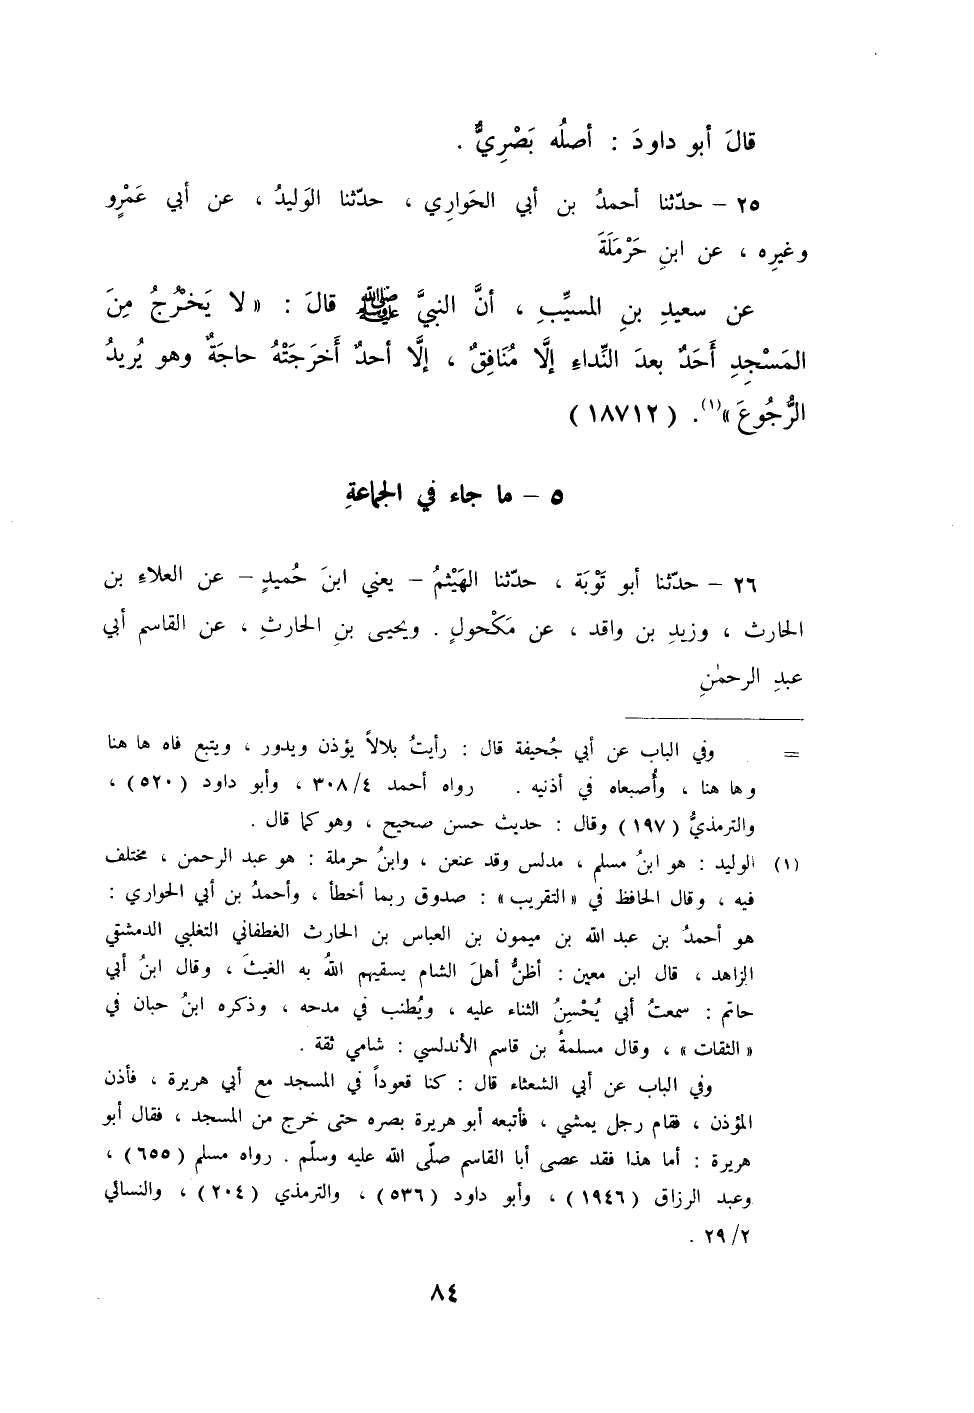 قالَ أبو داودَ : أصلُه بَصْرِيٌّ .
٢٥ – حدّثنا أحمدُ بن أبي الحَوارِي ، حدّثنا الوَليدُ ، عن أبي عَمْرٍو
وغيرِه ، عن ابنِ حَرْمَلَةَ
عن سعيدِ بنِ المسيِّبِ ، أنَّ النبيَّ ﷺ قالَ : « لا يَخْرُجُ مِنَ
المَسْجِدِ أَحَدٌ بعدَ النِّداءِ إلَّا مُنَافِقٌ ، إلَّا أحدٌ أَخرَجَتْهُ حاجَةٌ وهو يُريدُ
الرُّجُوعَ »(١). ( ١٨٧١٢ )
٥ – ما جاء في الجماعةِ
٢٦ – حدّثنا أبو تَوْبَة ، حدّثنا الهَيْثمُ – يعني ابنَ حُميدٍ – عن العلاءِ بن
الحارث ، وزيدِ بن واقد ، عن مَكْحولٍ . ويحيى بنِ الحارثِ ، عن القاسم أبي
عبدِ الرحمٰنِ
= وفي الباب عن أبي جُحيفة قال : رأيتُ بلالاً يؤذن ويدور ، ويتبع فاه ها هنا
وها هنا ، وأُصبعاه في أذنيه . رواه أحمد ٣٠٨/٤ ، وأبو داود ( ٥٢٠ ) ،
والترمذيُّ ( ١٩٧ ) وقال : حديث حسن صحيح ، وهو كما قال .
(١) الوليد : هو ابنُ مسلم ، مدلس وقد عنعن ، وابنُ حرملة : هو عبد الرحمن ، مختلف
فيه ، وقال الحافظ في « التقريب » : صدوق ربما أخطأ ، وأحمدُ بن أبي الحواري :
هو أحمدُ بن عبد الله بن ميمون بن العباس بن الحارث الغطفاني التغلبي الدمشقي
الزاهد ، قال ابن معين : أظنُّ أهلَ الشام يسقيهم اللهُ به الغيثَ ، وقال ابنُ أبي
حاتم : سمعتُ أبي يُحْسِنُ الثناء عليه ، ويُطنب في مدحه ، وذكره ابنُ حبان في
« الثقات » ، وقال مسلمةُ بن قاسم الأندلسي : شامي ثقة .
وفي الباب عن أبي الشعثاء قال : كنا قعوداً في المسجد مع أبي هريرة ، فأذن
المؤذن ، فقام رجل يمشي ، فأتبعه أبو هريرة بصره حتى خرج من المسجد ، فقال أبو
هريرة : أما هذا فقد عصى أبا القاسم صلّى الله عليه وسلّم . رواه مسلم ( ٦٥٥ ) ،
وعبد الرزاق ( ١٩٤٦ ) ، وأبو داود ( ٥٣٦ ) ، والترمذي ( ٢٠٤ ) ، والنسائي
٢٩/٢ .
٨٤